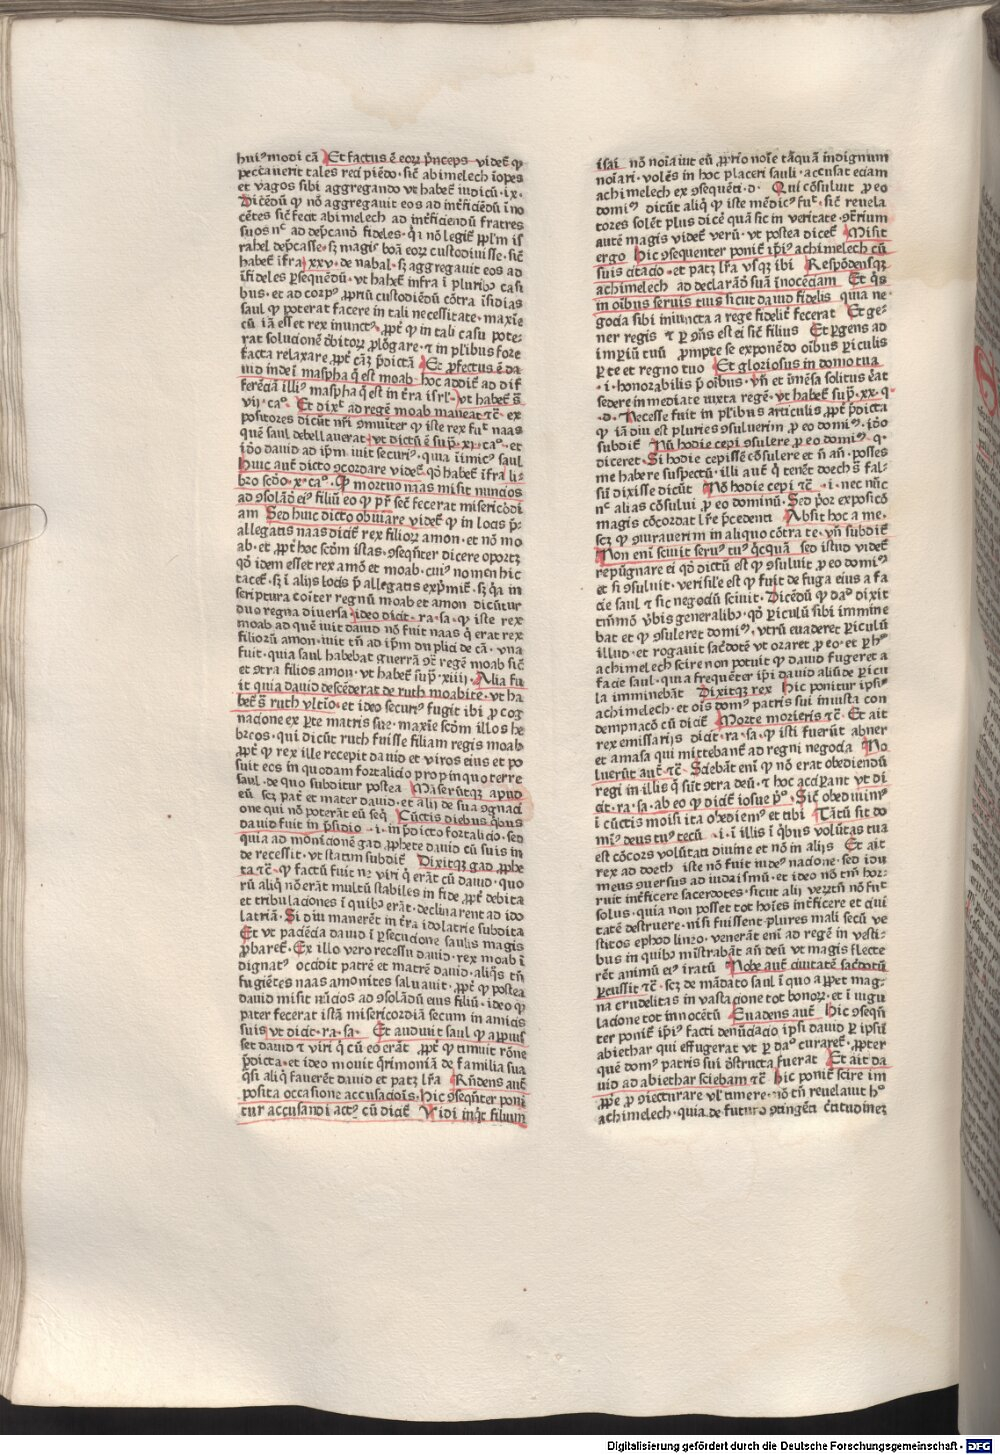 huiꝰmodi cā Et factus ē eoꝝ p̄nceps videt̄ ꝙ
peccauerit tales recipiēdo· sic̄ abimelech īopes
et vagos sibi aggregando vt habet̄ iudicū·ix·
Dicēdū ꝙ nō aggregauit eos ad int̄ficiēdū īno
cētes sic̄ fecit abimelech ad int̄ficiendū fratres
suos nᶜ ad dep̄cand fideles· qꝛ nō legit̄ ꝓpl̄m is
rahel dep̄casse· sꝫ magis boā eoꝝ custodiuisse· sic̄
habet̄ īfra xxv· de nabal· sꝫ aggregauit eos ad
īfideles ꝑsequēdū· vt habet̄ infra ī pluribꝰ casi
bus· et ad corpꝰ ꝓpriū custodiēdū cōtra īsidias
saul ꝙ poterat facere in tali necessitate· maxīe
cū iā esset rex inunctꝰ· ꝓpt̄ ꝙ in tali casu pote-
rat solucionē dbitoꝝ ꝓlōgare· ⁊ in pl̄ibus fore
facta relaxare ꝓpt̄ cāꝫ p̄dictā Et ꝓfectus ē da
uid inde ī maspha q̄ est moab hoc addit̄ ad dif
ferēciā illiꝰ maspha q̄ est in t̄ra isrl· vt habet̄ s̄
vij·caᵒ· Et dixᵗ ad regē moab maneat ⁊c̄ ex
positores dicūt nr̄i ꝯmuīter ꝙ iste rex fuᵗ naas
quē saul debellauerat vt dictū ē sup̄·xi·caᵒ·et
iō dauid ad ip̄m iuit securiꝰ· quia īimicꝰ saul
Huic aut̄ dicto ꝯcordare videt̄ qꝺ habet̄ īfra li-
bro scd̄o·x·caᵒ· Ꝙ mortuo naas misit nuncios
ad ꝯsolādū ei⁹ filiū eo ꝙ pr̄ sec̄ fecerat misericōdi
am Sed huic dicto obuiare videt̄ ꝙ in locis p̄-
allegatis naas dicit̄ rex filioꝝ amon· et nō mo
ab·et ꝓpt̄ hoc scd̄m istas· ꝯseqn̄ter dicere oportꝫ
qꝺ idem esset rex amō et moab· cuiꝰ nomen hic
tacet̄· sꝫ ī alijs locis p̄ allegatis exp̄mit̄· sꝫ qꝛa in
scriptura cōiter regnū moab et amon dicūtur
duo regna diuersa ideo dicit· ra·sa·ꝙ iste rex
moab ad quē iuit dauid nō fuit naas q̄ erat rex
filiorū amon·iuit tn̄ ad ip̄m duplici de cā· vna
fuit·quia saul habebat guerrā ꝯt̄ regē moab sic̄
et ꝯtra filios amon·vt habet̄ sup̄·xiiij· Alia fu
it quia dauid descēderat de ruth moabite·vt ha
bet̄ s̄ ruth vltīo·et ideo securiꝰ fugit ibi ꝓ cog
nacione ex ꝑte matris sue·maxīe scd̄m illos he
breos·qui dicūt ruth fuisse filiam regis moab
ꝓpt̄ ꝙ rex ille recepit dauid et viros eius et po
suit eos in quodam fortalicio propinquo terre
saul·de quo subditur postea Māserūtqꝫ apud
eū scꝫ pat̄ et mater dauid·et alij de sua ꝯgnaci
one qui nō poterāt eū seq̄ Cūctis diebus qb̄us
dauid fuit in p̄sidio·i·in p̄dicto fortalicio·sed
quia ad monicionē gad ꝓphete dauid cū suis in
de recessit·vt statim subdit̄ Dixitqꝫ gad ꝓphe
ta ⁊c̄·ꝙ factū fuit nᵉ viri q̄ erāt cū dauid·quo
rū aliq̄ nō erāt multū stabiles in fide ꝓpt̄ debita
et tribulaciones ī quibꝰ erāt·declinarent ad ido
latriā· Si diu manerēt in t̄ra idolatrie subdita
Et vt paciēcia dauid ī ꝑsecucione saulis magis
ꝓbaret̄· Ex illo vero recessu dauid·rex moab ī
dignatꝰ occidit patrē et matrē dauid·aliq̄s tn̄
fugiētes naas amonites saluauit·ꝓpt̄ ꝙ postea
dauid misit nūcios ad ꝯsolādū eius filiū·ideo ꝙ
pater fecerat istā misericordiā secum in amicis
suis vt dicit·ra·sa· Et audiuit saul ꝙ apparuis
set dauid ⁊ viri q̄ cū eo erāt ꝓpt̄ ꝙ timuit rōne
p̄dicta·et ideo mouit q̄rimoniā de familia sua
q̄si aliq̄ fauerēt dauid et patꝫ lr̄a Rn̄dens aut̄
posita occasione accusaciois·hic ꝯseqn̄ter poni
tur accusandi actꝰ cū dicit̄ Vidi inq̄t filium
isai nō noīauit eū ꝓprio noīe tāquā indignum
noīari·volēs in hoc placeri sauli·accusat eciam
achimelech ex ꝯsequēti·d· Qui cōsuluit ꝓ eo
domiꝰ dicūt aliq̄ ꝙ iste mēdicꝰ fuᵗ·sic̄ reuela
tores solēt plus dicē quā sic in veritate ꝯt̄rium
autē magis videt̄ verū·vt postea dicet̄ Misit
ergo hic ꝯsequenter ponit̄ ip̄iꝰ achimelech cū
suis citacio·et patꝫ lr̄a vsqꝫ ibi Respōdensqꝫ
achimelech ad declarādū suā inocēciam Et q̄s
in oībus seruis tuis sicut dauid fidelis quia ne-
gocia sibi iniuncta a rege fidelit̄ fecerat Et ge-
ner regis ⁊ ꝑ ꝯn̄s est ei sic̄ filius Et ꝑgens ad
imꝑiū tuū ꝓmpte se exponēdo oībus ꝑiculis
ꝑ te et regno tuo Et gloriosus in domo tua
·i·honorabilis p̄ oībus·vn̄ et īmēsa solitus erat
sedere inmediate iuxta regē·vt habet̄ sup̄·xx·q̄
·d· Necesse fuit in pl̄ibus articulis ꝓpt̄ p̄dicta
ꝙ iā diu est pluries ꝯsuluerim ꝓ eo domiꝰ·iō
subdit̄ Nū hodie cepi ꝯsulere ꝓ eo domiꝰ·q·
diceret· Si hodie cepissē cōsulere et n̄ an̄·posses
me habere suspectū·illi aut̄ q̄ tenēt doech s̄ fal-
sū dixisse dicūt Nō hodie cepi ⁊c̄·i·nec nūc
nᶜ alias cōsului ꝓ eo dominū· Sed p̄or exposicō
magis cōcordat lr̄e p̄cedenti Absit hoc a me·
scꝫ ꝙ ꝯiurauerim in aliquo cōtra te·vn̄ subdit̄
Non enī sciuit seruꝰ tuꝰ q̄cquā sed istud videt̄
repūgnare ei qꝺ dictū est ꝙ ꝯsuluit ꝓ eo domiꝰ
et si ꝯsuluit·verisil̄e est ꝙ fuit de fuga eius a fa
cie saul ⁊ sic negociū sciuit· Dicēdū ꝙ daᵈ dixit
tn̄mō v̄bis generalibꝰ·qꝺ ꝑiculū sibi immine
bat et ꝙ ꝯsuleret domiꝰ·vtrū euaderet ꝑiculū
illud·et rogauit sac̄dotē vt oraret ꝓ eo·et ꝑ hᵒ
achimelech scire non potuit ꝙ dauid fugeret a
facie saul·quia frequēter ip̄i dauid aliūde ꝑicu
la imminebāt Dixitqꝫ rex Hic ponitur ipsiꝰ
achimelech·et oīs domꝰ patris sui iniusta con
dempnacō cū dicit̄ Morte morieris ⁊c̄ Et ait
rex emissarijs dicit·ra·sa·ꝙ isti fuerūt abner
et amasa qui mittebant̄ ad regni negocia No
luerūt aut̄ ⁊c̄ Sciebāt enī ꝙ nō erat obediendū
regi in illis q̄ sūt ꝯtra deū·⁊ hoc accꝑant vt di
cit·ra·sa·ab eo ꝙ dicit̄ iosue pᵒ· Sic̄ obediuimꝰ
ī cūctis moisi ita obediemꝰ et tibi Tātū sit do
miꝰ deus tuꝰ tecū·i·ī illis ī q̄bus volūtas tua
est cōcors volūtati diuine et nō in alijs Et ait
rex ad doech iste nō fuit iudeꝰ nacione·sed idu
meus ꝯuersus ad iudaismū·et ideo nō tm̄ hor-
ruit int̄ficere sacerdotes·sicut alij veꝝtn̄ nō fuᵗ
solus·quia non posset tot hoīes int̄ficere et ciui
tatē destruere·nisi fuissent plures mali secū ve
stitos ephod lineo·venerāt enī ad regē in vesti-
bus in quibꝰ mīstrabāt an̄ deū vt magis flecte
rēt animū eiꝰ iratū Nobe aut̄ ciuitatē sac̄dotū
ꝑcussit ⁊c̄·scꝫ de mādato saul ī quo apꝑet mag-
na crudelitas in vastacione tot bonoꝝ·et ī iugu
lacione tot innocētū Euadens aut̄ Hic ꝯseqn̄
ter ponit̄ ip̄iꝰ facti denūciacio ipsi dauid ꝑ ipsū
abiethar qui effugerat vt ꝑ daᵈ curaret̄·ꝓpter
quē domꝰ patris sui d̄structa fuerat Et ait da
uid ad abiethar sciebam ⁊c̄ hic ponit̄ scire im
ꝓpͥe ꝓ ꝯiecturare vl̄ timere·nō tn̄ reuelauit hᵒ
achimelech·quia de futuro ꝯtingēti c̄titudineꝫ
Digitalisierung gefördert durch die Deutsche Forschungsgemeinschaft - DFG